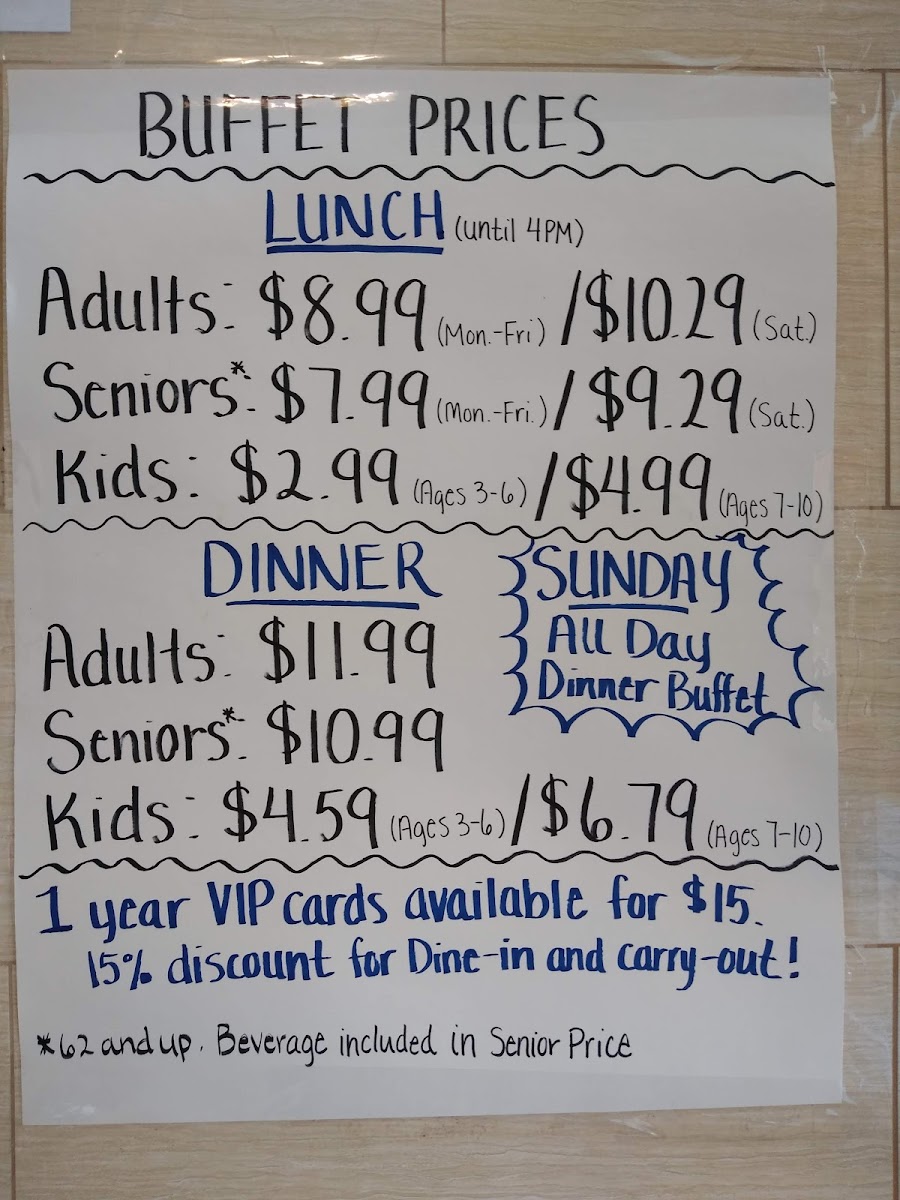 BUFFET PRICES
LUNCH (until 4PM)
Adults: $8.99 (Mon.-Fri) / $10.29 (Sat.)
Seniors*: $7.99 (Mon.-Fri.) / $9.29 (Sat.)
Kids: $2.99 (Ages 3-6) / $4.99 (Ages 7-10)
DINNER
Adults: $11.99
Seniors*: $10.99
Kids: $4.59 (Ages 3-6) / $6.79 (Ages 7-10)
SUNDAY
All Day
Dinner Buffet
1 year VIP cards available for $15.
15% discount for Dine-in and carry-out!
*62 and up. Beverage included in Senior Price